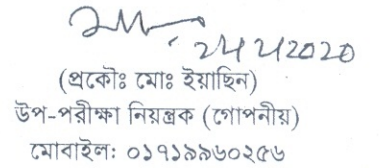 (প্রকৌঃ মোঃ ইয়াছিন)
উপ-পরীক্ষা নিয়ন্ত্রক (গোপনীয়)
মোবাইল: ০১৭১৯৯৬০২৫৬